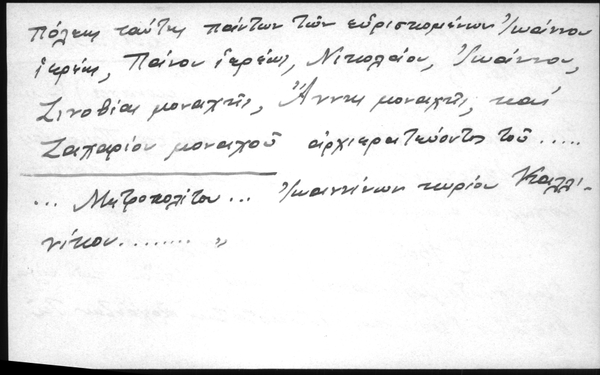 πόλεως ταύτης πάντων τῶν εὑρισκομένων Ἰωάννου
ἱερέως, Πάνου ἱερέως, Νικολάου, Ἰωάννου,
Ζινοθίας μοναχῆς, Ἄννης μοναχῆς, καί
Ζαχαρίου μοναχοῦ ἀρχιερατεύοντος τοῦ .....
... Μητροπολίτου ... Ἰωαννίνων κυρίου Καλλι-
νίκου ........ "